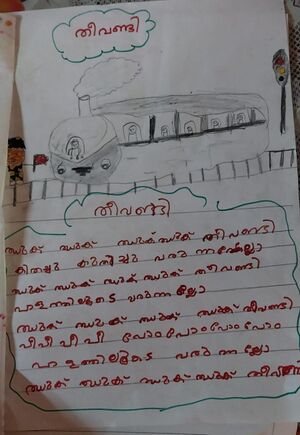 തീവണ്ടി
തീവണ്ടി
ഝുക് ഝുക് ഝുക് ഝുക് തീവണ്ടി
കിതച്ചു കുതിച്ചു വരുന്നല്ലോ
ഝുക് ഝുക് ഝുക് ഝുക് തീവണ്ടി
പാളത്തിലൂടെ വരുന്നല്ലോ
ഝുക് ഝുക് ഝുക് ഝുക് തീവണ്ടി
പീ പീ പീ പീ പോം പോം പോം പോം
പാളത്തിലൂടെ വരുന്നല്ലോ
ഝുക് ഝുക് ഝുക് ഝുക് തീവണ്ടി